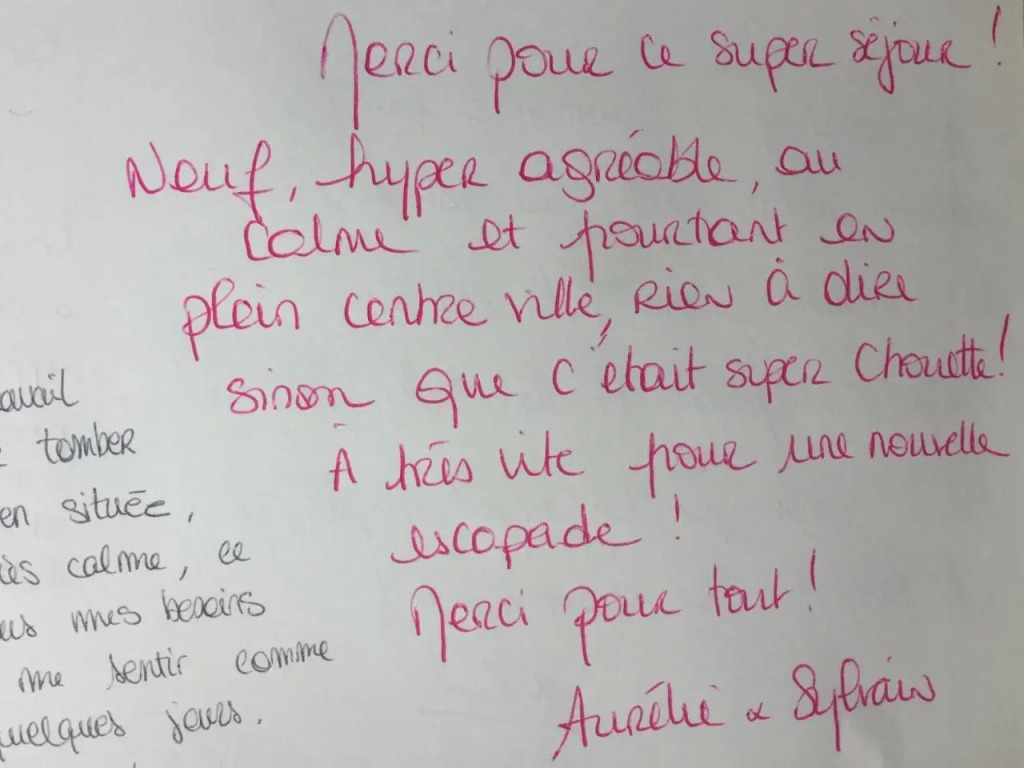 Merci pour ce super séjour !
Neuf, hyper agréable, au
calme et pourtant en
plein centre ville, rien à dire
sinon que c'était super chouette !
À très vite pour une nouvelle
escapade !
Merci pour tout !
Aurélie & Sylvain
avail
tomber
en située,
ès calme, ce
us mes besoins
me sentir comme
quelques jours.